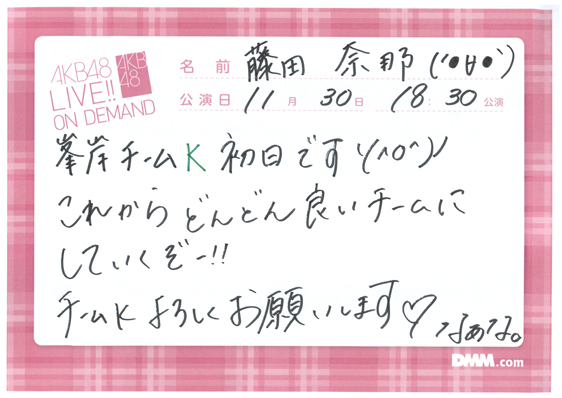 AKB48
LIVE!!
ON DEMAND
AKB
48
名前 藤田 奈那 (´●ㅂ●`)
公演日 11月 30日 18:30公演
峯岸チームK 初日です\(^o^)/
これからどんどん良いチームに
していくぞー!!
チームKよろしくお願いします♡ なぁな。
DMM.com